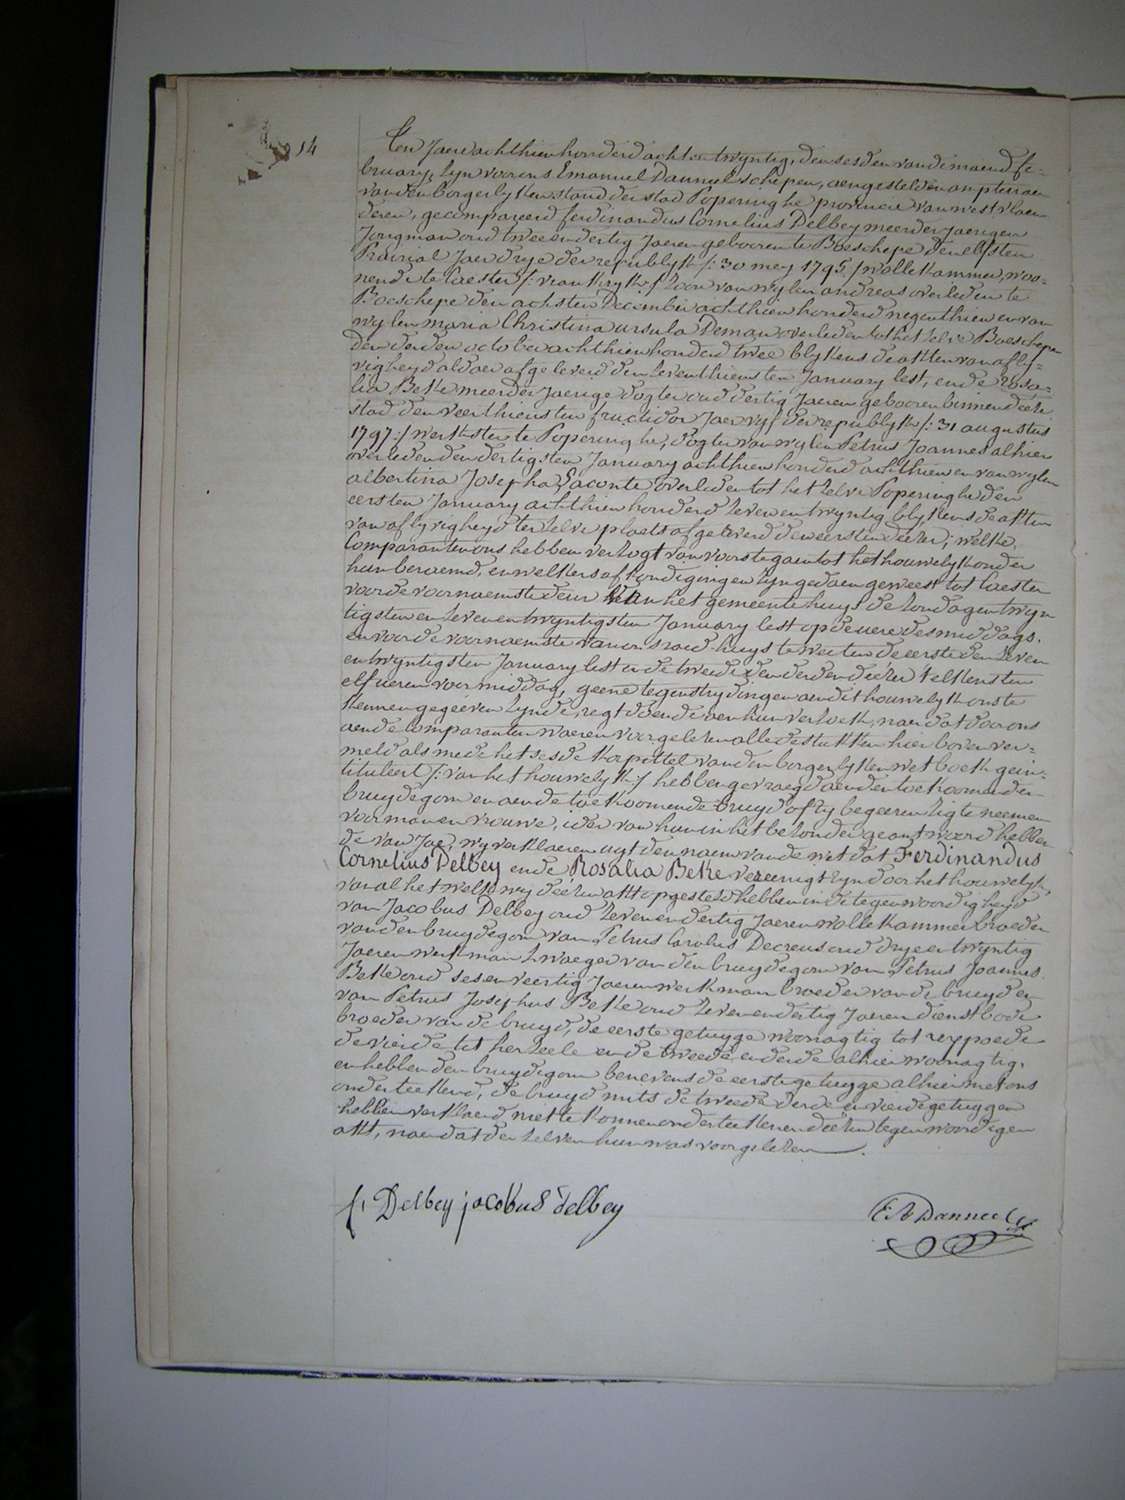 14
Ten Jaere achthien honderd acht en twyntig, den sesden van de maend fe-
bruary, zyn voor ons Emanuel Danneel schepen, aengestelden amptenaer
van den borgerlyken stand der stad Poperinghe provincie van westvlaen-
deren, gecompareerd ferdinandus Cornelius Delbey meerderjaerigen
Jongman oud twee en dertig Jaeren gebooren te Boeschepe den elfsten
Prairial Jaer drye der republyk /: 30 mey 1795 :/ wollekammer, woo-
nende te Caester /: vrankryk :/ zoon van wylen andreas overleden te
Boeschepe den achsten December achthien honderd negenthien en van
wylen maria Christina ursula Deman overleden tot het zelve Boeschepe
den derden october achthien honderd twee blykens de akten van afly-
vigheyd aldaer afgeleverd den zeventhiensten January lest, ende rosa-
lia Beke meerderjaerige dogter oud dertig Jaeren gebooren binnen deeze
stad den veerthiensten fructidor Jaer vyf der republyk /: 31 augustus
1797 :/ werkster te Poperinghe, dogter van wylen Petrus Joannes alhier
overleden den dertigsten January achthien honderd achthien en van wylen
albertina Josepha Laconte overleden tot het zelve Poperinghe den
eersten January achthien honderd zeven en twyntig blykens de akten
van aflyvigheyd ter zelve plaets afgeleverd den eersten deezer; welke
Comparanten ons hebben verzogt van voorstegaen tot het houwelyk onder
hun beraemd, en welkers afkondigingen zyn gedaen geweest tot Caester
voor de voornaemste deur van het gemeente huys de zondagen twyn-
tigsten en zeven en twyntigsten January lest op de uere des middags.
en voor de voornaemste van ons raed-huys te weeten de eerste den zeven
en twyntigsten January lest en de tweede den derden deezer telkens ten
elf ueren voormiddag, geene tegenstrydingen aen dit houwelyk ons te
kennen gegeeven zynde, regt doende aen hun verzoek, naer dat door ons
aen de comparanten waeren voorgelezen alle de stukken hier boven ver-
meld als mede het sesde kapittel van den borgerlyken wetboek gein-
tituleert /: van het houwelyk :/ hebben gevraegd aen den toekoomenden
bruydegom en aen de toekoomende bruyd of zy begeeren zig te neemen
voor man en vrouwe, ider van hun in het bezonder geantwoord hebben-
de van Jae, wy verklaeren uyt den naem van de wet dat Ferdinandus
Cornelius Delbey ende Rosalia Beke vereenigt zyn door het houwelyk,
van al het welk wy deezen akt opgesteld hebben in de tegenwoordigheyd
van Jacobus Delbey oud zeven en dertig Jaeren wollekammer broeder
van den bruydegom van Petrus Carolus Decreus oud drye en twyntig
Jaeren werkman zwaeger van den bruydegom van Petrus Joannes
Beke oud ses en veertig Jaeren werkman broeder van de bruyd en
van Petrus Josephus Beke oud zeven en dertig Jaeren dienstbode
broeder van de bruyd, de eerste getuyge woonagtig tot rexpoede
de vierde tot herzeele en de tweede en derde alhier woonagtig,
en hebben den bruydegom benevens de eerste getuyge alhier met ons
onderteekend, de bruyd mits de tweede derde en vierde getuygen
hebben verklaerd niet te konnen onderteekenen deezen tegenwoordigen
akt, naer dat den zelven hun was voorgelezen
f. Delbey jacobus delbey
E A Danneel